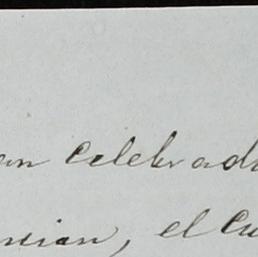 an celebrad
nsian, el Cu